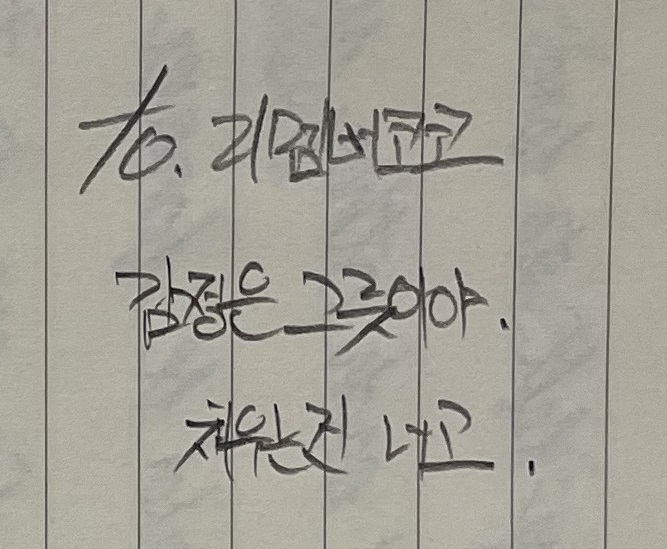 To. 리멤버코코
감정은 그릇이야.
채우는건 너고.